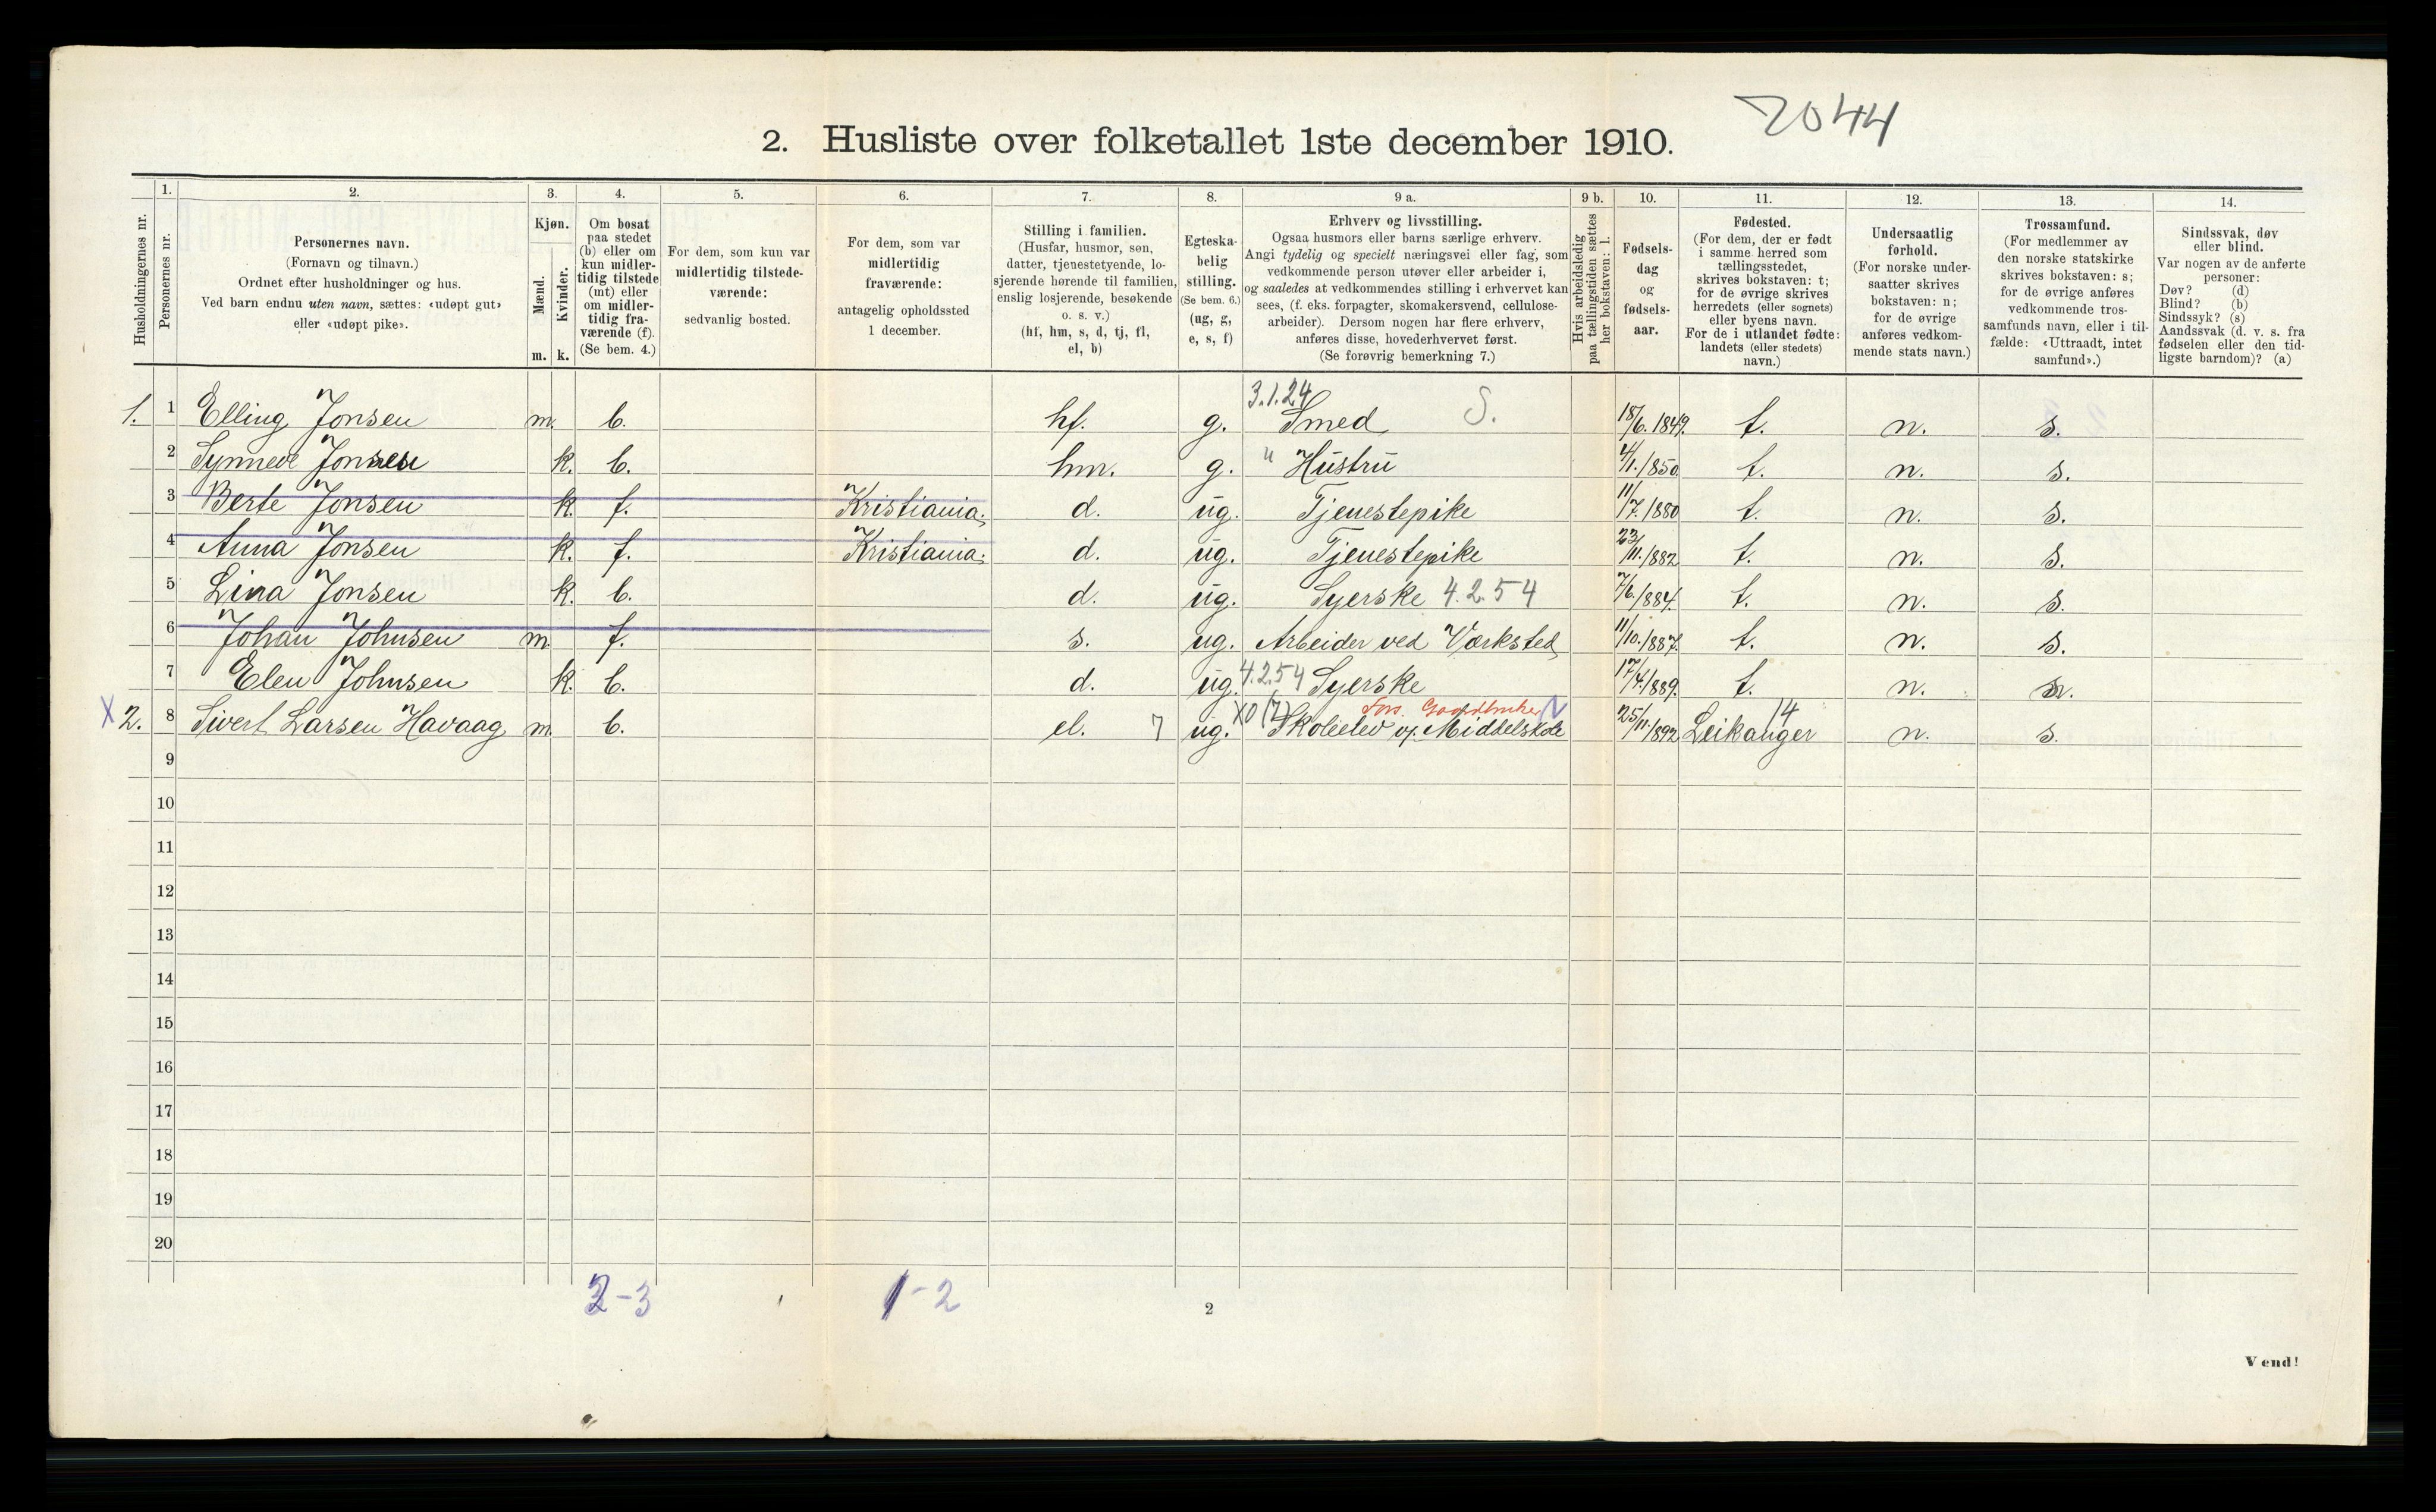 2044
2. Husliste over folketallet 1ste december 1910.
Husholdningernes nr.
1.
Personernes nr.
2.
Personernes navn.
(Fornavn og tilnavn.)
Ordnet efter husholdninger og hus.
Ved barn endnu uten navn, sættes: «udøpt gut»
eller «udøpt pike».
3.
Kjøn.
Mænd.
Kvinder.
m. k.
4.
Om bosat
paa stedet
(b) eller om
kun midler-
tidig tilstede
(mt) eller
om midler-
tidig fra-
værende (f).
(Se bem. 4.)
5.
For dem, som kun var
midlertidig tilstede-
værende:
sedvanlig bosted.
6.
For dem, som var
midlertidig
fraværende:
antagelig opholdssted
1 december.
7.
Stilling i familien.
(Husfar, husmor, søn,
datter, tjenestetyende, lo-
sjerende hørende til familien,
enslig losjerende, besøkende
o. s. v.)
(hf, hm, s, d, tj, fl,
el, b)
8.
Egteska-
belig
stilling.
(Se bem. 6.)
(ug, g,
e, s, f)
9 a.
Erhverv og livsstilling.
Ogsaa husmors eller barns særlige erhverv.
Angi tydelig og specielt næringsvei eller fag, som
vedkommende person utøver eller arbeider i,
og saaledes at vedkommendes stilling i erhvervet kan
sees, (f. eks. forpagter, skomakersvend, cellulose-
arbeider). Dersom nogen har flere erhverv,
anføres disse, hovederhvervet først.
(Se forøvrig bemerkning 7.)
9 b.
Hvis arbeidsledig
paa tællingstiden sættes
her bokstaven: l.
10.
Fødsels-
dag
og
fødsels-
aar.
11.
Fødested.
(For dem, der er født
i samme herred som
tællingsstedet,
skrives bokstaven: t;
for de øvrige skrives
herredets (eller sognets)
eller byens navn.
For de i utlandet fødte:
landets (eller stedets)
navn.)
12.
Undersaatlig
forhold.
(For norske under-
saatter skrives
bokstaven: n;
for de øvrige
anføres vedkom-
mende stats navn.)
13.
Trossamfund.
(For medlemmer av
den norske statskirke
skrives bokstaven: s;
for de øvrige anføres
vedkommende tros-
samfunds navn, eller i til-
fælde: «Uttraadt, intet
samfund».)
14.
Sindssvak, døv
eller blind.
Var nogen av de anførte
personer:
Døv? (d)
Blind? (b)
Sindssyk? (s)
Aandssvak (d. v. s. fra
fødselen eller den tid-
ligste barndom)? (a)
3.1.24
1. 1 Elling Jonsen m. b. hf. g. Smed S. 18/6. 1849. t. n. s.
2 Synneve Jonsen k. b. hm. g. " Hustru 4/1. 1850 t. n. s.
3 Berte Jonsen k. f. Kristiania. d. ug. Tjenestepike 11/7. 1880 t. n. s.
4 Anna Jonsen k. f. Kristiania. d. ug. Tjenestepike 23/11. 1882 t. n. s.
5 Lina Jonsen k. b. d. ug. Syerske 4.2.54 7/6. 1884. t. n. s.
6 Johan Johnsen m. f. s. ug. Arbeider ved Værksted 11/10. 1887. t. n. s.
7 Elen Johnsen k. b. d. ug. 4.2.54 Syerske 17/4. 1889. t. n. s.
Fors. Gaardbruker 14
X 2. 8 Sivert Larsen Havaag m. b. el. 7 ug. X0 (7) Skoleelev v. Middelskole 25/11. 1892 Leikanger n. s.
9
10
11
12
13
14
15
16
17
18
19
20
2-3 1-2
2
Vend!